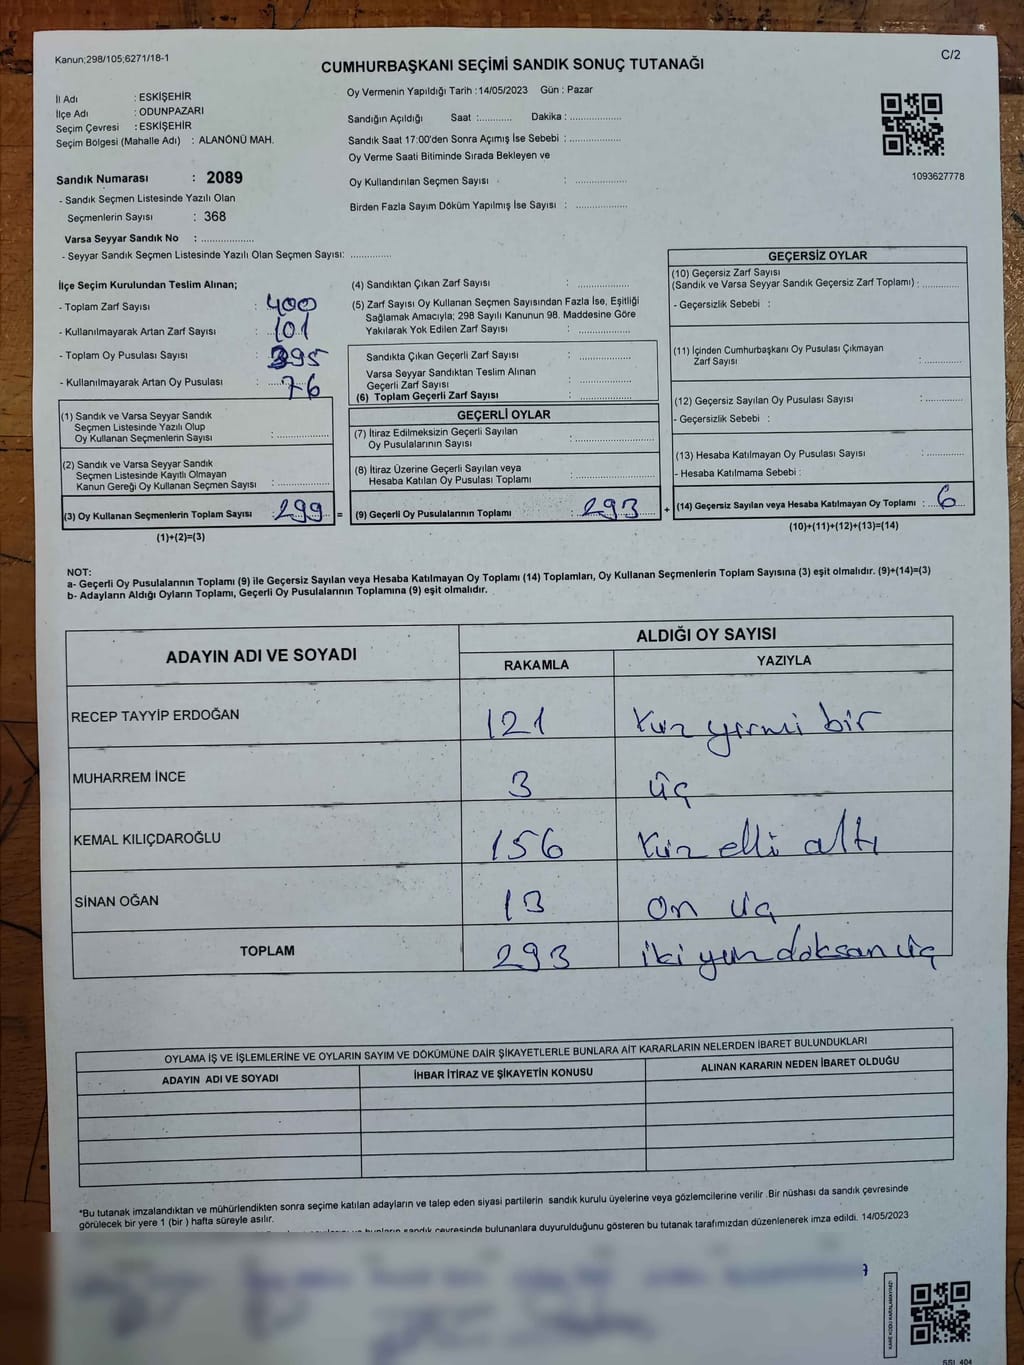 Kanun;298/105;6271/18-1
C/2
CUMHURBAŞKANI SEÇİMİ SANDIK SONUÇ TUTANAĞI
İl Adı : ESKİŞEHİR
İlçe Adı : ODUNPAZARI
Seçim Çevresi : ESKİŞEHİR
Seçim Bölgesi (Mahalle Adı) : ALANÖNÜ MAH.
Sandık Numarası : 2089
- Sandık Seçmen Listesinde Yazılı Olan
Seçmenlerin Sayısı : 368
Varsa Seyyar Sandık No : ...................
- Seyyar Sandık Seçmen Listesinde Yazılı Olan Seçmen Sayısı: ..............
Oy Vermenin Yapıldığı Tarih : 14/05/2023 Gün : Pazar
Sandığın Açıldığı Saat :............ Dakika : ..................
Sandık Saat 17:00'den Sonra Açımış İse Sebebi : ..................
Oy Verme Saati Bitiminde Sırada Bekleyen ve
Oy Kullandırılan Seçmen Sayısı : ..................
Birden Fazla Sayım Döküm Yapılmış İse Sayısı : ..................
1093627778
İlçe Seçim Kurulundan Teslim Alınan;
- Toplam Zarf Sayısı : 400
- Kullanılmayarak Artan Zarf Sayısı : 101
- Toplam Oy Pusulası Sayısı : 395
- Kullanılmayarak Artan Oy Pusulası : 76
(1) Sandık ve Varsa Seyyar Sandık
Seçmen Listesinde Yazılı Olup
Oy Kullanan Seçmenlerin Sayısı : ..................
(2) Sandık ve Varsa Seyyar Sandık
Seçmen Listesinde Kayıtlı Olmayan
Kanun Gereği Oy Kullanan Seçmen Sayısı : ..................
(3) Oy Kullanan Seçmenlerin Toplam Sayısı : 299 =
(1)+(2)=(3)
(4) Sandıktan Çıkan Zarf Sayısı : ..................
(5) Zarf Sayısı Oy Kullanan Seçmen Sayısından Fazla İse, Eşitliği
Sağlamak Amacıyla; 298 Sayılı Kanunun 98. Maddesine Göre
Yakılarak Yok Edilen Zarf Sayısı : ..................
Sandıkta Çıkan Geçerli Zarf Sayısı : ..................
Varsa Seyyar Sandıktan Teslim Alınan
Geçerli Zarf Sayısı : ..................
(6) Toplam Geçerli Zarf Sayısı : ..................
GEÇERLİ OYLAR
(7) İtiraz Edilmeksizin Geçerli Sayılan
Oy Pusulalarının Sayısı : ..................
(8) İtiraz Üzerine Geçerli Sayılan veya
Hesaba Katılan Oy Pusulası Toplamı : ..................
(9) Geçerli Oy Pusulalarının Toplamı : 293 +
GEÇERSİZ OYLAR
(10) Geçersiz Zarf Sayısı
(Sandık ve Varsa Seyyar Sandık Geçersiz Zarf Toplamı) : ............
- Geçersizlik Sebebi :
(11) İçinden Cumhurbaşkanı Oy Pusulası Çıkmayan
Zarf Sayısı : ............
(12) Geçersiz Sayılan Oy Pusulası Sayısı : ............
- Geçersizlik Sebebi :
(13) Hesaba Katılmayan Oy Pusulası Sayısı : ............
- Hesaba Katılmama Sebebi :
(14) Geçersiz Sayılan veya Hesaba Katılmayan Oy Toplamı : 6
(10)+(11)+(12)+(13)=(14)
NOT:
a- Geçerli Oy Pusulalarının Toplamı (9) ile Geçersiz Sayılan veya Hesaba Katılmayan Oy Toplamı (14) Toplamları, Oy Kullanan Seçmenlerin Toplam Sayısına (3) eşit olmalıdır. (9)+(14)=(3)
b- Adayların Aldığı Oyların Toplamı, Geçerli Oy Pusulalarının Toplamına (9) eşit olmalıdır.
ADAYIN ADI VE SOYADI ALDIĞI OY SAYISI
RAKAMLA YAZIYLA
RECEP TAYYİP ERDOĞAN 121 Yüz yirmi bir
MUHARREM İNCE 3 üç
KEMAL KILIÇDAROĞLU 156 Yüz elli altı
SİNAN OĞAN 13 on üç
TOPLAM 293 iki yüz doksan üç
OYLAMA İŞ VE İŞLEMLERİNE VE OYLARIN SAYIM VE DÖKÜMÜNE DAİR ŞİKAYETLERLE BUNLARA AİT KARARLARIN NELERDEN İBARET BULUNDUKLARI
ADAYIN ADI VE SOYADI İHBAR İTİRAZ VE ŞİKAYETİN KONUSU ALINAN KARARIN NEDEN İBARET OLDUĞU
*Bu tutanak imzalandıktan ve mühürlendikten sonra seçime katılan adayların ve talep eden siyasi partilerin sandık kurulu üyelerine veya gözlemcilerine verilir .Bir nüshası da sandık çevresinde
görülecek bir yere 1 (bir ) hafta süreyle asılır.
sandık çevresinde bulunanlara duyurulduğunu gösteren bu tutanak tarafımızdan düzenlenerek imza edildi. 14/05/2023